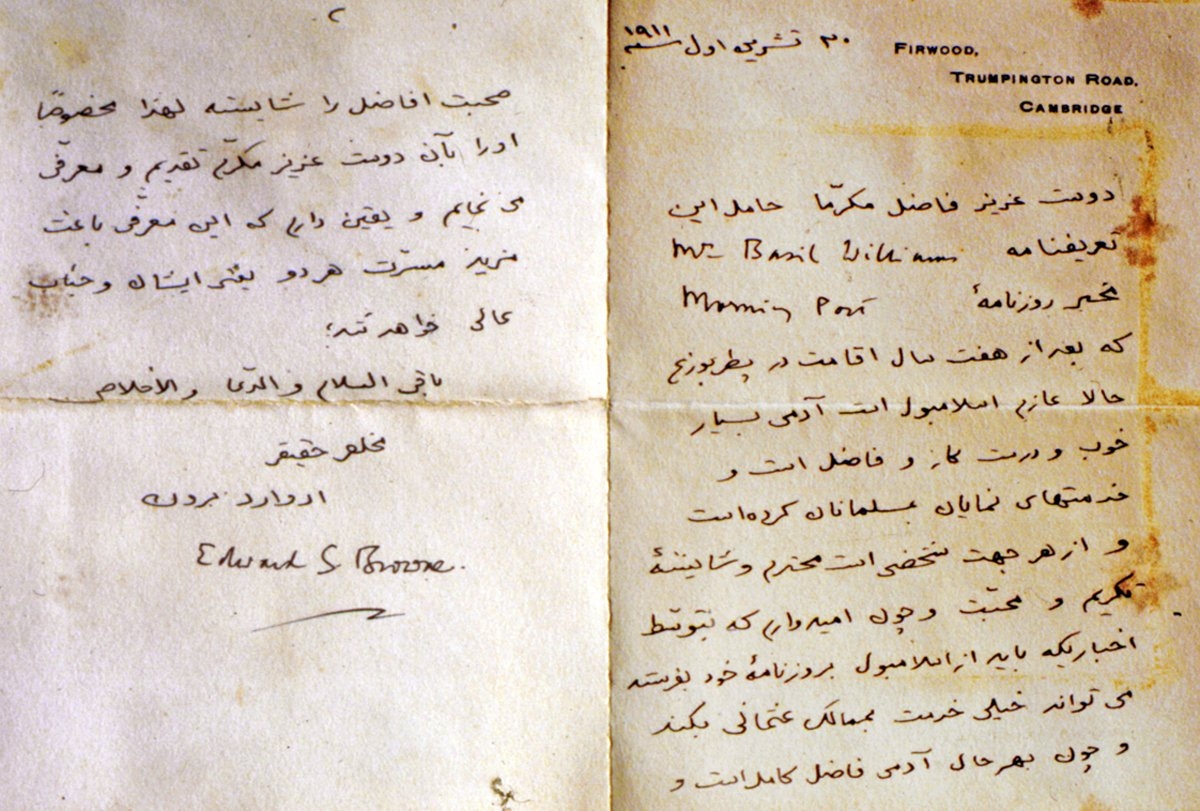 ۳۰ تشرین اول سنه ۱۹۱۱
FIRWOOD,
TRUMPINGTON ROAD,
CAMBRIDGE
دوست عزیز فاضل مکرّما حامل این
تعریفنامه Mr Basil Williams
مخبر روزنامهٔ Morning Post
که بعد از هفت سال اقامت در پطربورغ
حالا عازم اسلامبول است آدمی بسیار
خوب و درست کار و فاضل است و
خدمتهای نمایان بمسلمانان کرده است
و از هر جهت شخصی است محترم و شایستهٔ
تکریم و محبّت و چون امیدوارم که بتوسّط
اخباریکه باید از اسلامبول بروزنامهٔ خود بفرستد
می تواند خیلی خدمت بممالک عثمانی بکند
و چون بهر حال آدمی فاضل کامل است و
۲
صحبت افاضل را شایسته لهذا مخصوصًا
اورا بآن دوست عزیز مکرّم تقدیم و معرّفی
می نمایم و یقین دارم که این معرّفی باعث
مزید مسرّت هر دو یعنی ایشان و جناب
عالی خواهد شد؛
باقی السلام و الدعا والاخلاص
مخلص حقیقی
ادوارد برون
Edward G Browne.